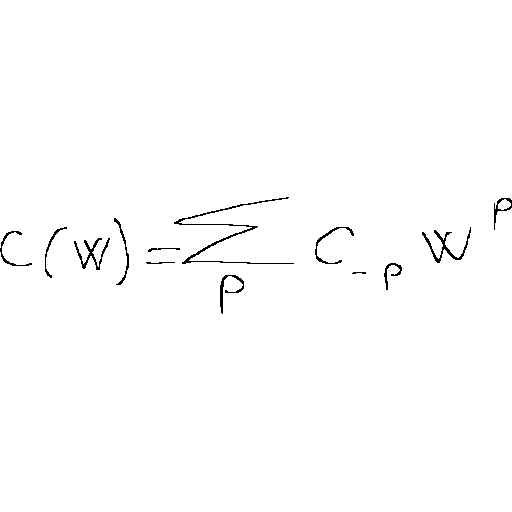 C(W) = \sum_{p} C_{-p} W^{p}